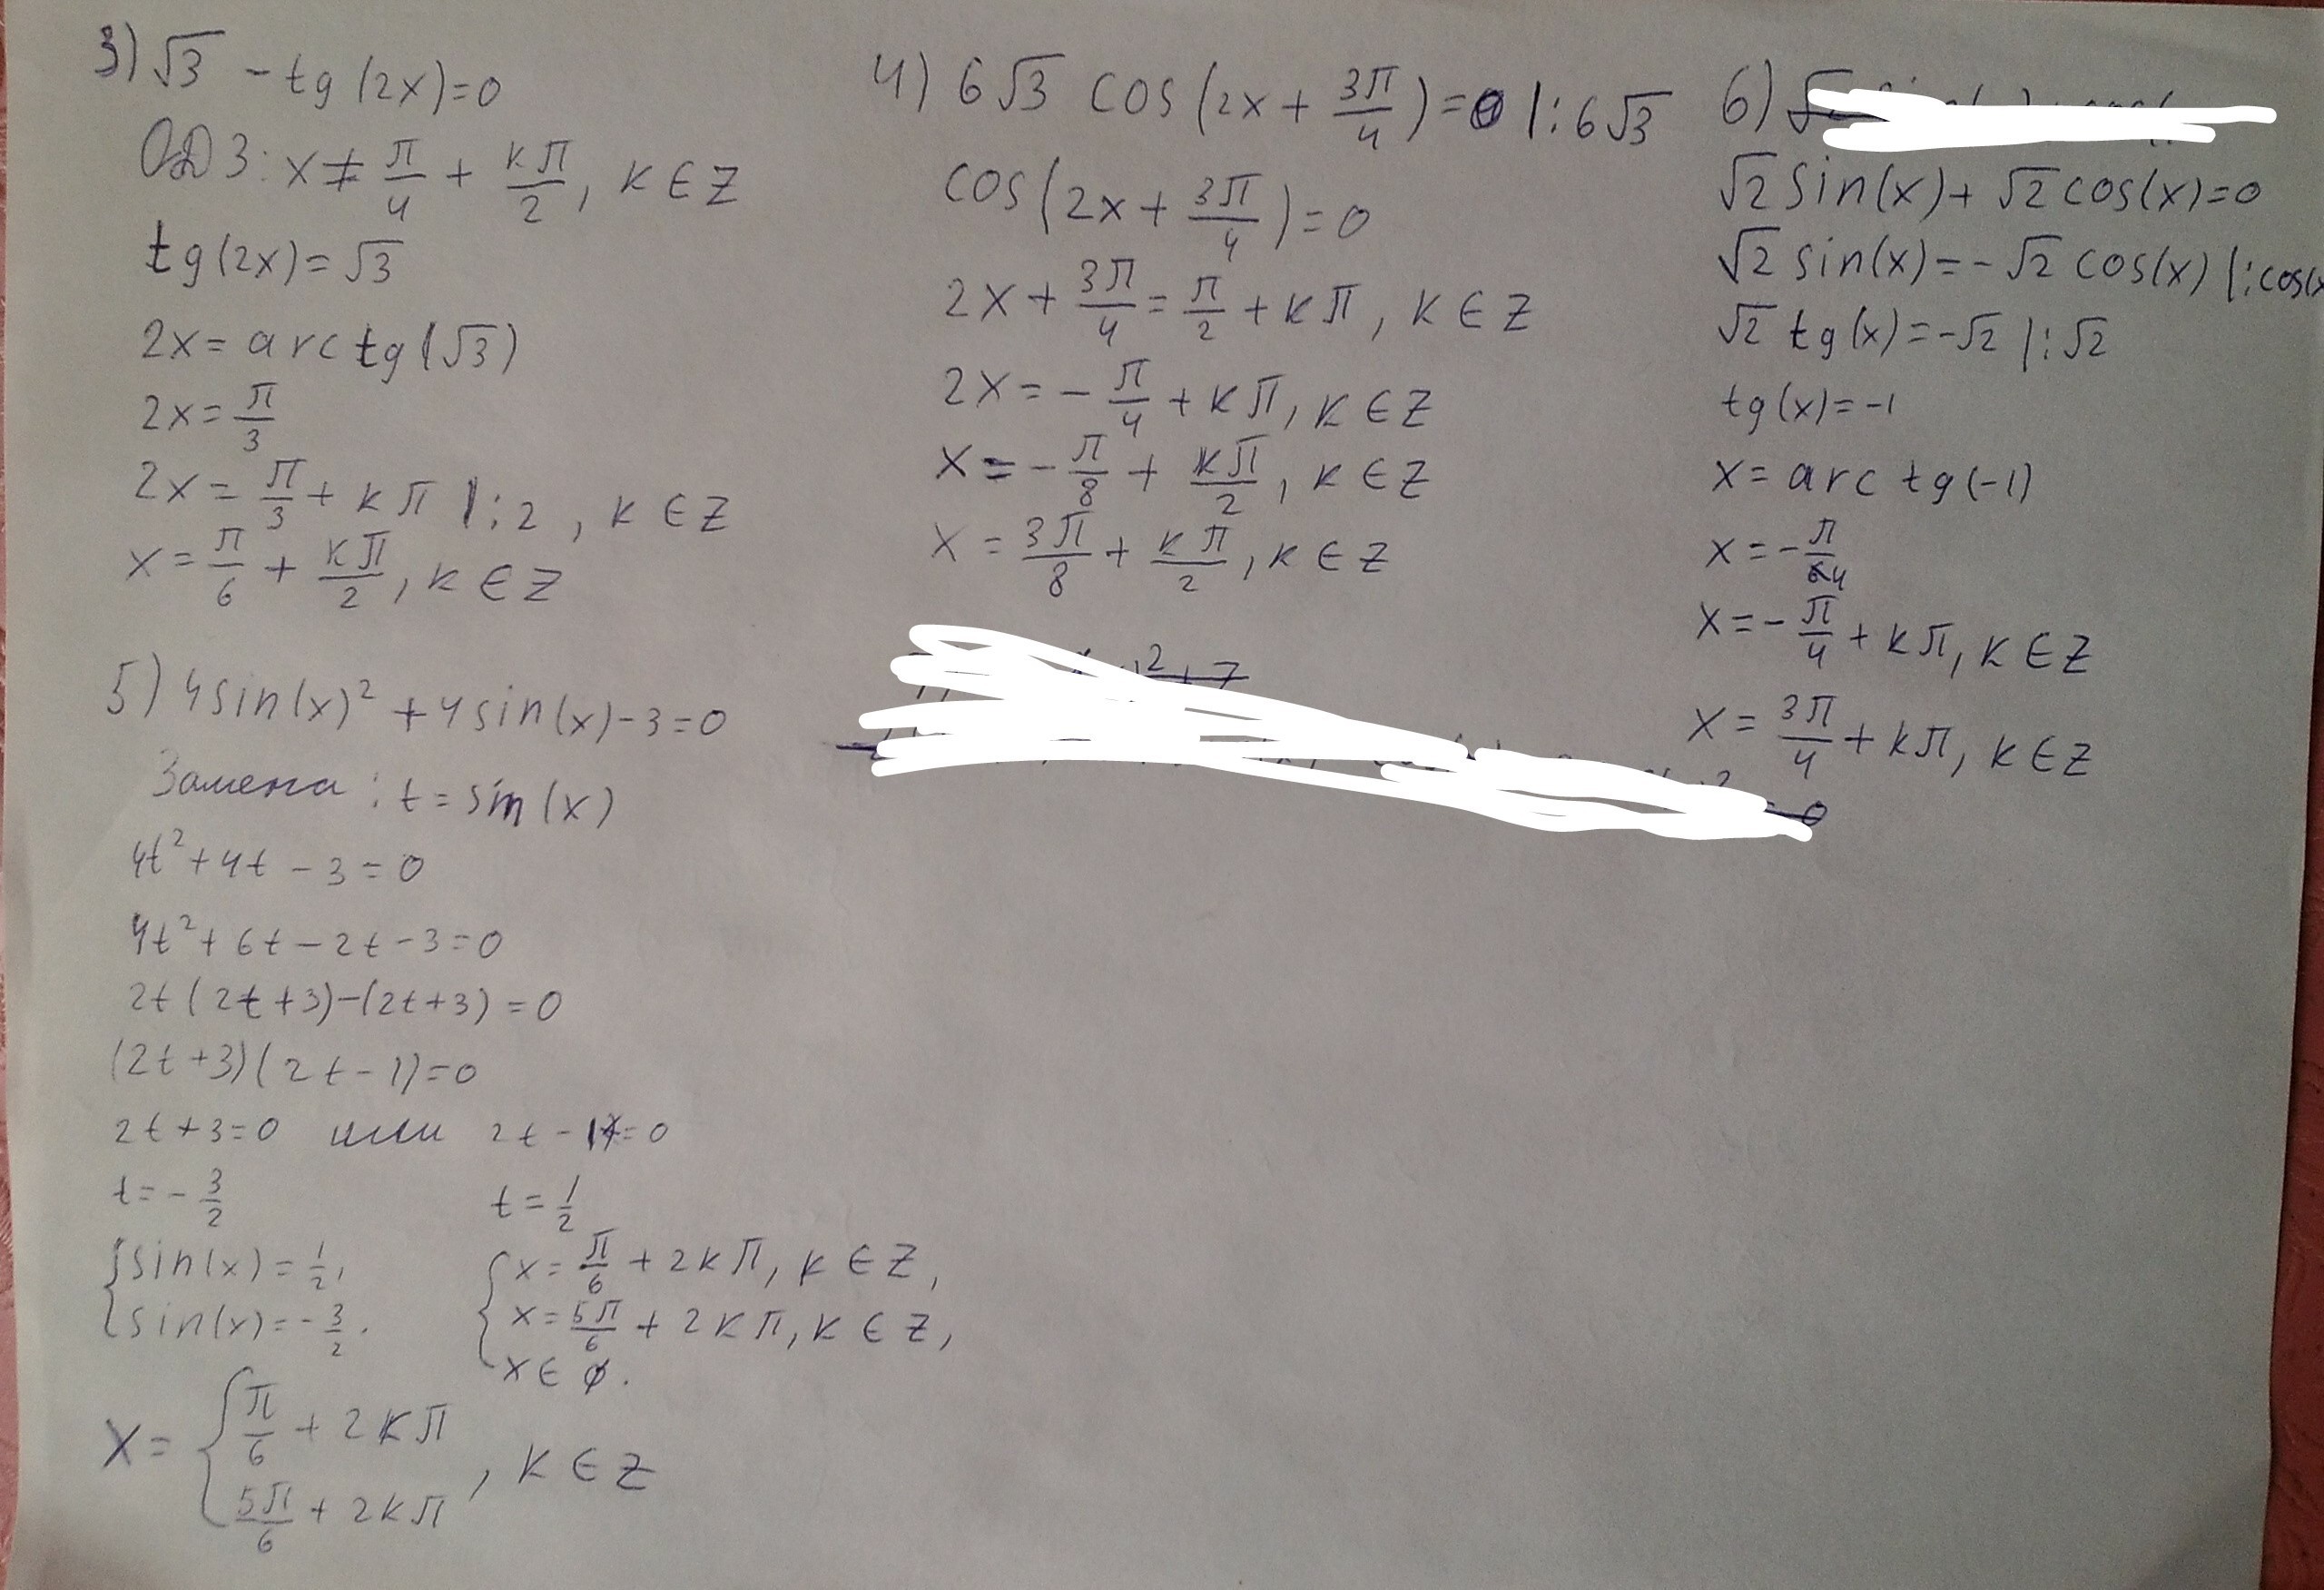 3) √3 - tg(2x)=0
ОДЗ: x ≠ π/4 + kπ/2, k ∈ Z
tg(2x)=√3
2x= arctg(√3)
2x= π/3
2x= π/3 + kπ |:2, k ∈ Z
x= π/6 + kπ/2, k ∈ Z
5) 4sin(x)² + 4sin(x)-3=0
Замена: t= sin(x)
4t²+4t-3=0
4t²+6t-2t-3=0
2t(2t+3)-(2t+3)=0
(2t+3)(2t-1)=0
2t+3=0 или 2t-1=0
t=-3/2 t=1/2
{sin(x)=1/2,
sin(x)=-3/2.
{x=π/6 + 2kπ, k ∈ Z,
x=5π/6 + 2kπ, k ∈ Z,
x ∈ ∅.
x= {π/6 + 2kπ
5π/6 + 2kπ , k ∈ Z
4) 6√3 cos(2x+ 3π/4)=0 |:6√3
cos(2x+ 3π/4)=0
2x+ 3π/4 = π/2 + kπ, k ∈ Z
2x=- π/4 + kπ, k ∈ Z
x=- π/8 + kπ/2, k ∈ Z
x= 3π/8 + kπ/2, k ∈ Z
6)
√2 sin(x)+ √2 cos(x)=0
√2 sin(x)=-√2 cos(x) |:cos(x
√2 tg(x)=-√2 |:√2
tg(x)=-1
x= arctg(-1)
x=- π/4
x=- π/4 + kπ, k ∈ Z
x= 3π/4 + kπ, k ∈ Z